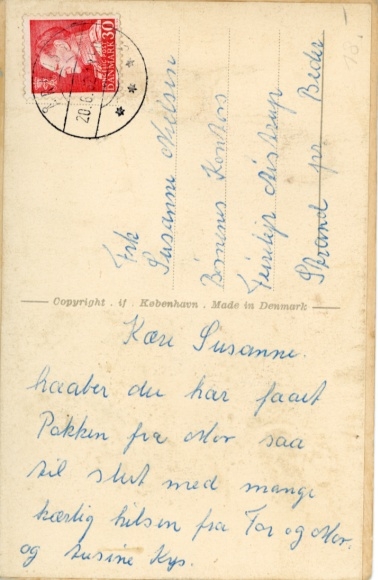 30
DANMARK
20.6.
Frk
Susanne Nielsen
Børnenes Kontor
Ajstrup
Strand pr Beder
Copyright . if . København . Made in Denmark
Kære Susanne.
haaber du har faaet
Pakken fra Mor saa
til slut med mange
kærlig hilsen fra Far og Mor.
og tusine Kys.